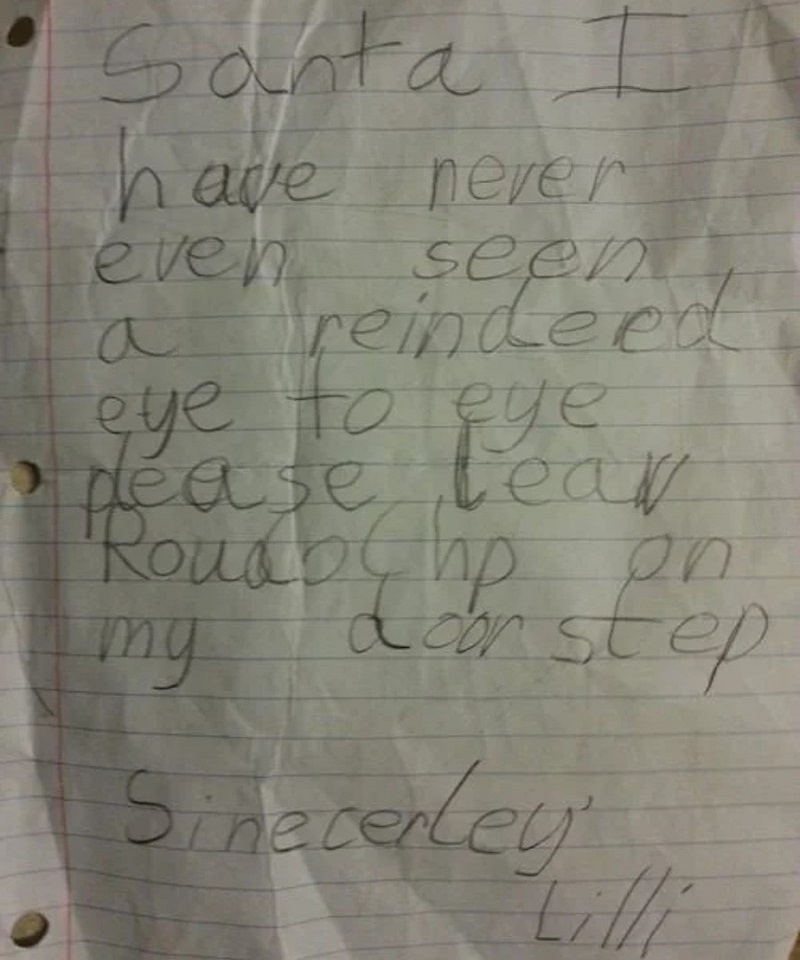 Santa I
have never
even seen
a reindeed
eye to eye
please leav
Roudolhp on
my doorstep
Sinecerley'
Lilli